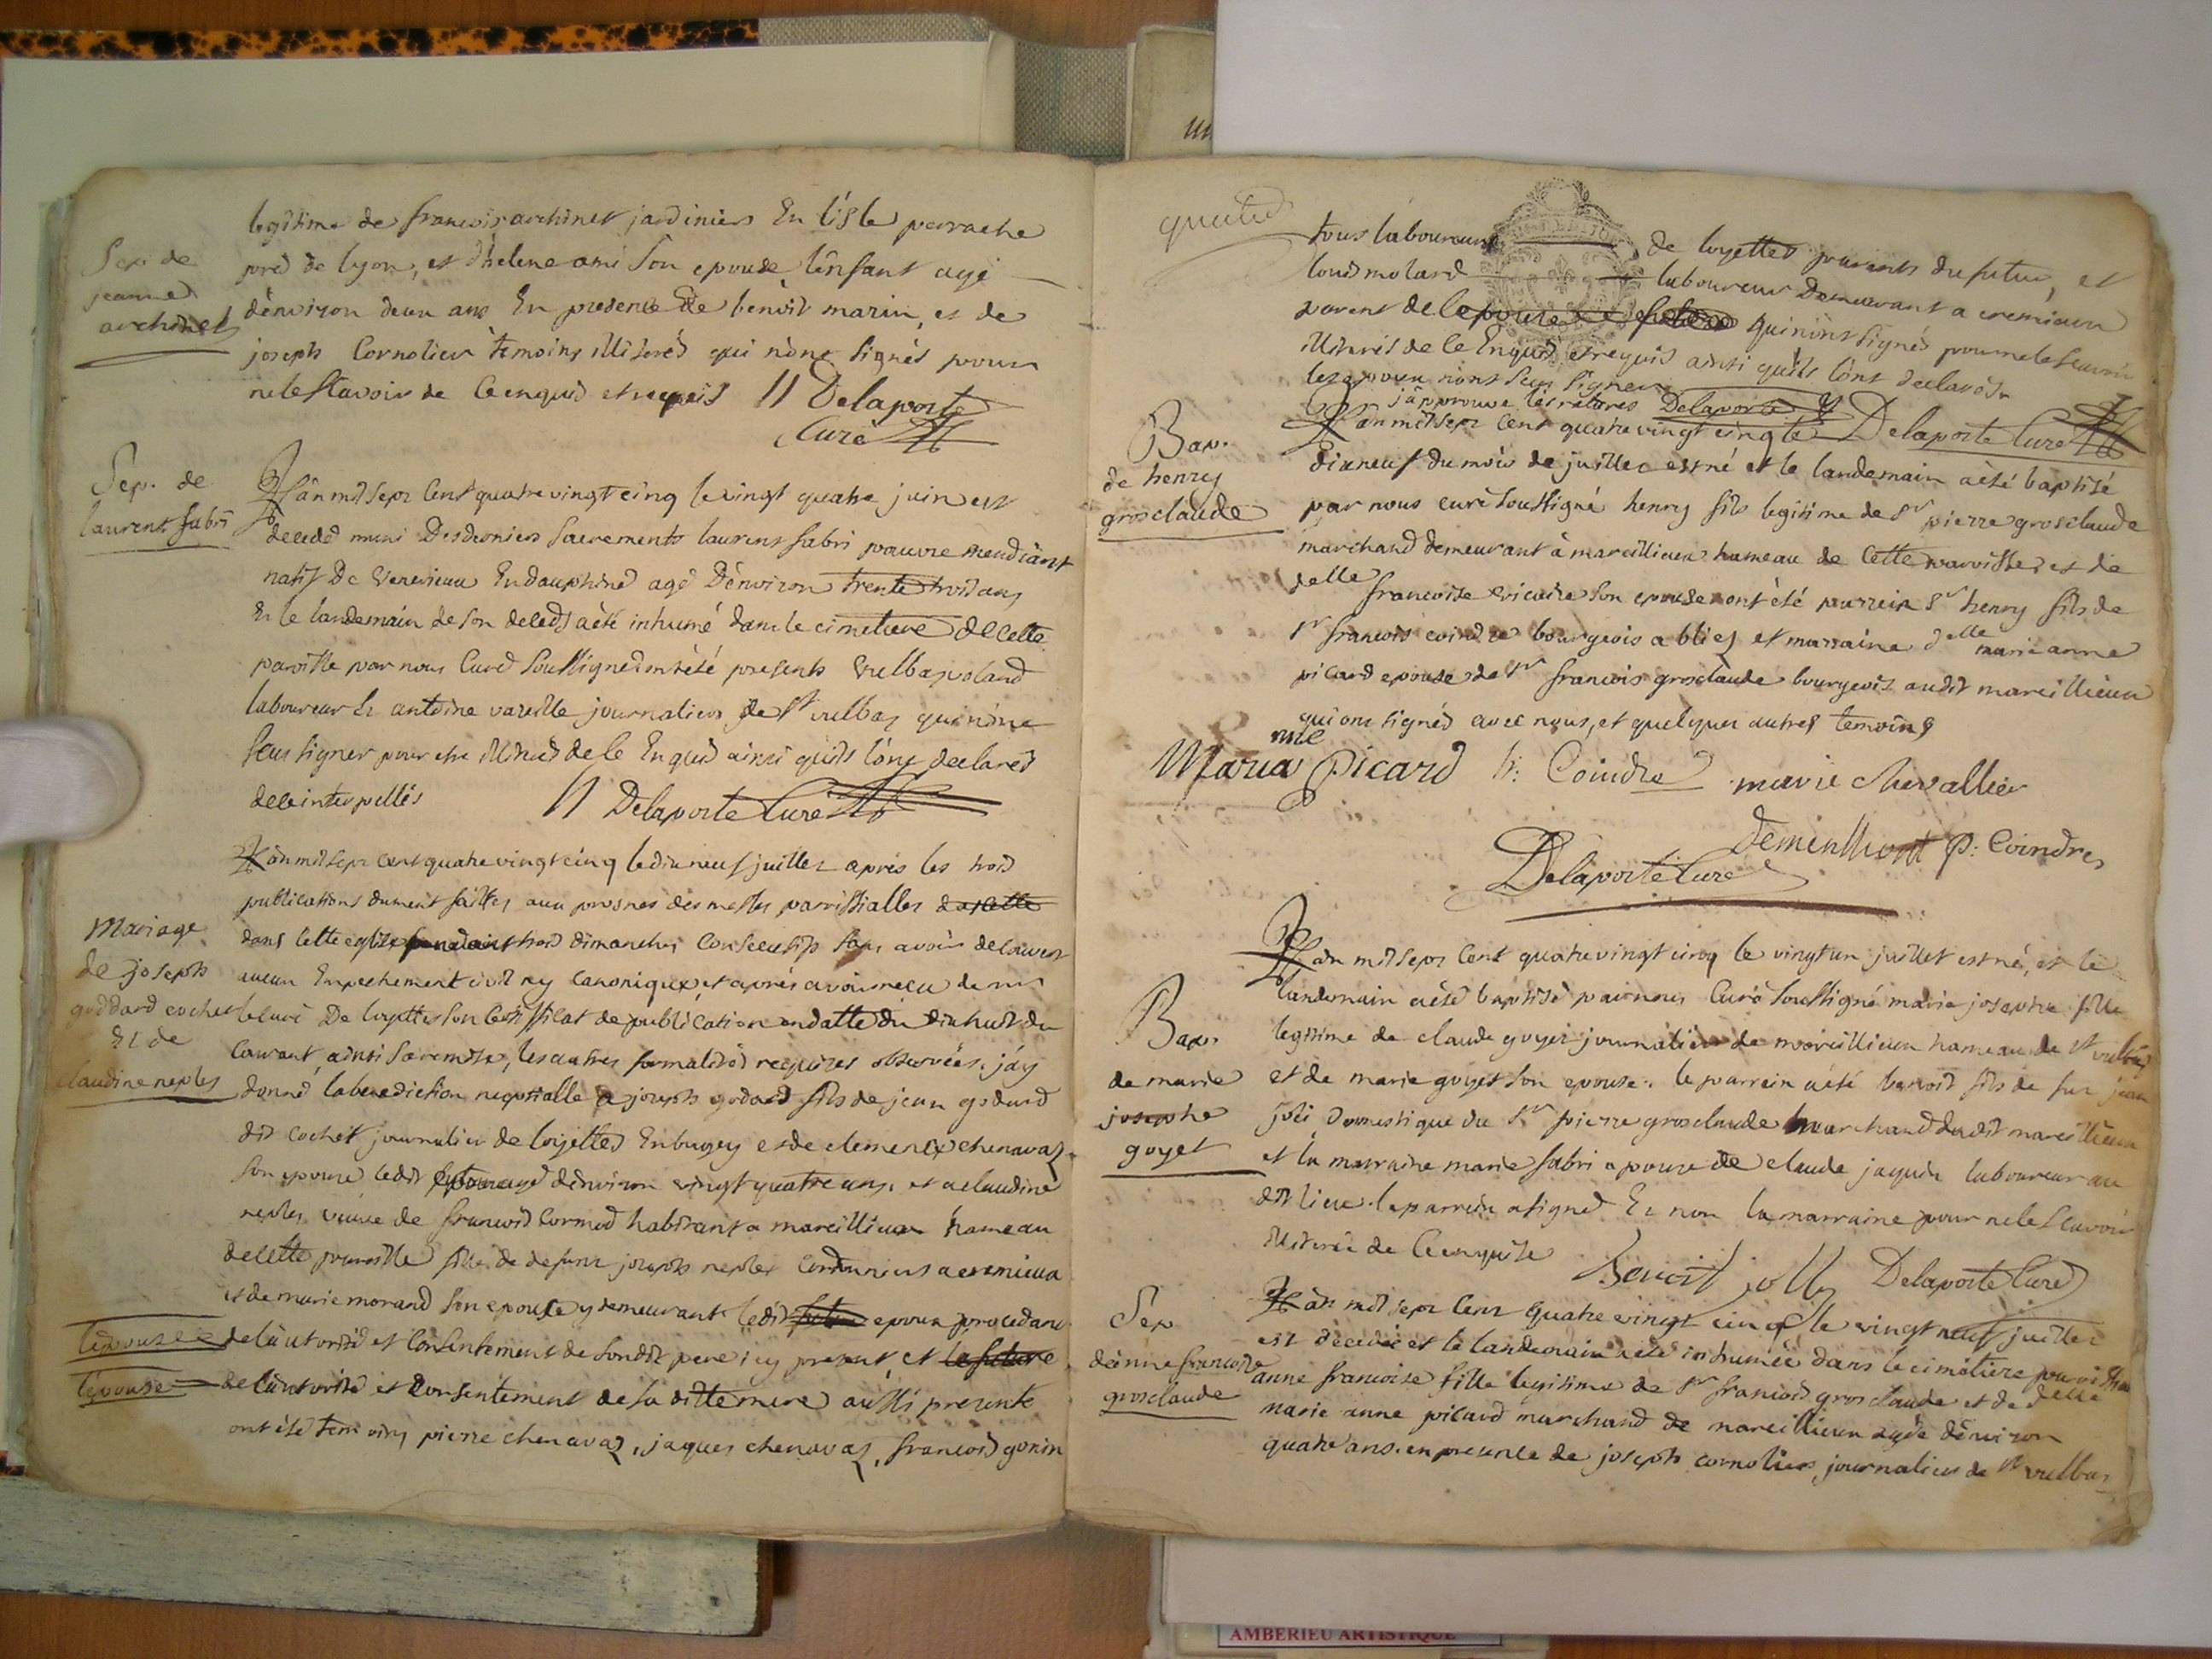 legitime de francois archinet jardiniers En l'isle perrache
Sep. de
jeanne
archinet
pred de lyon, et d'helene ami son epouse l'enfant agé
d'environ deux ans En presence de benoit marin, et de
joseph Cornolieu temoins illiterés qui n'ont signés pour
ne le sçavoir de Ce enquis et requis // Delaporte
Curé
Sep. de
laurent fabri
L'an mil sept Cent quatre vingt cinq le vingt quatre juin est
decedé muni Des derniers Sacrements laurent fabri pauvre mendiant
natif De Venerieu En dauphiné agé D'environ trente trois ans
Et le landemain de son decéds a été inhumé dans le cimetiere de Cette
paroisse par nous Curé Soussigné ont été presents Vulbas
laboureur Et antoine journalier de St vulbas qui n'ont
Sçus signer pour etre illiterés de Ce Enquis ainsi qu'ils l'ont declarés
de ce interpellés // Delaporte Curé
Mariage
de joseph
goddard cochet
Et de
claudine neples
L'an mil sept cent quatre vingt cinq le dix neuf juillet apres les trois
publications dument faittes aux prosnes des messes parrissialles de cette
dans Cette eglise pendant trois dimanches Consecutifs sans avoir decouvert
aucun Empechement civil ny Canonique, et aprés avoir recu de mr
le curé De loyettes son Certificat de publication en datte du dix huit du
Courant, ainsi Sa remise, les autres formalités requises observées, j'ay
donné la benediction nuptialle a joseph godard fils de jean godard
dit cochet journalier de loyettes En bugey et de clemence chenavaz
son epouse ledit agé d'environ vingt quatre ans, et a claudine
neples veuve de francois Cormod habitant a marcillieux hameau
de cette paroisse fille de defunt joseph neples Cordonniers a cremieux
et de marie morand son epouse y demeurant ledit futur epoux procedant
l'epouse
de l'autorité et Consentement de sondit pere icy present, et la future
l'epouse
de l'autorité et Consentement de sa ditte mere aussi presente
ont été temoins pierre chenavaz, jaques chenavaz, francois gonin
tous laboureurs de loyettes parents du futur, et
molard laboureur demeurant a cremieux
parent de l'epouse qui n'ont signés pour ne le sçavoir
illiterés de Ce Enquis et requis ainsi qu'ils l'ont declarés
les epoux n'ont Sçus signer
j'approuve les ratures Delaporte
Delaporte Curé
Bap.
de henry
grosclaude
L'an mil sept Cent quatre vingt cinq le
dixneuf du mois de juillet est né et le landemain a été baptisé
par nous curé Soussigné henry fils legitime de Sr pierre grosclaude
marchand demeurant à marcillieux hameau de Cette paroisse, et de
delle francoise son epouse, ont été parrein Sr henry fils de
Sr francois coindre bourgeois a blies et marraine delle marie anne
picard epouse de Sr francois grosclaude bourgeois audit marcillieux
qui ont signés avec nous, et quelques autres temoins
Maria Picard h: Coindre marie chevallier
P: Coindre
Delaporte Curé
Bap.
de marie
josephe
goyet
L'an mil sept Cent quatre vingt cinq le vingt un juillet est né, et le
landemain a été baptisé par nous Curé Soussigné marie josephe fille
legitime de claude goyet journalier de marcillieux hameau de St vulbas
et de marie goyet son epouse. le parrein a été benoit fils de feu jean
joli Domestique du Sr pierre grosclaude marchand dudit marcillieux
et la marraine marie fabri epouse de claude jaquin laboureur au
dit lieu. le parrein a signé Et non la marraine pour ne le sçavoir
illiterée de Ce enquise
Benoit jolly Delaporte Curé
Sep
d'anne francoise
grosclaude
L'an mil sept Cent quatre vingt cinq, le vingt neuf juillet
est decedée et le landemain a été inhumée dans le cimetiere
anne francoise fille legitime de Sr francois grosclaude et de delle
marie anne picard marchand de marcillieux agée d'environ
quatre ans. en presence de joseph cornolieu, journalier de St vulbas
AMBERIEU ARTISTIQUE